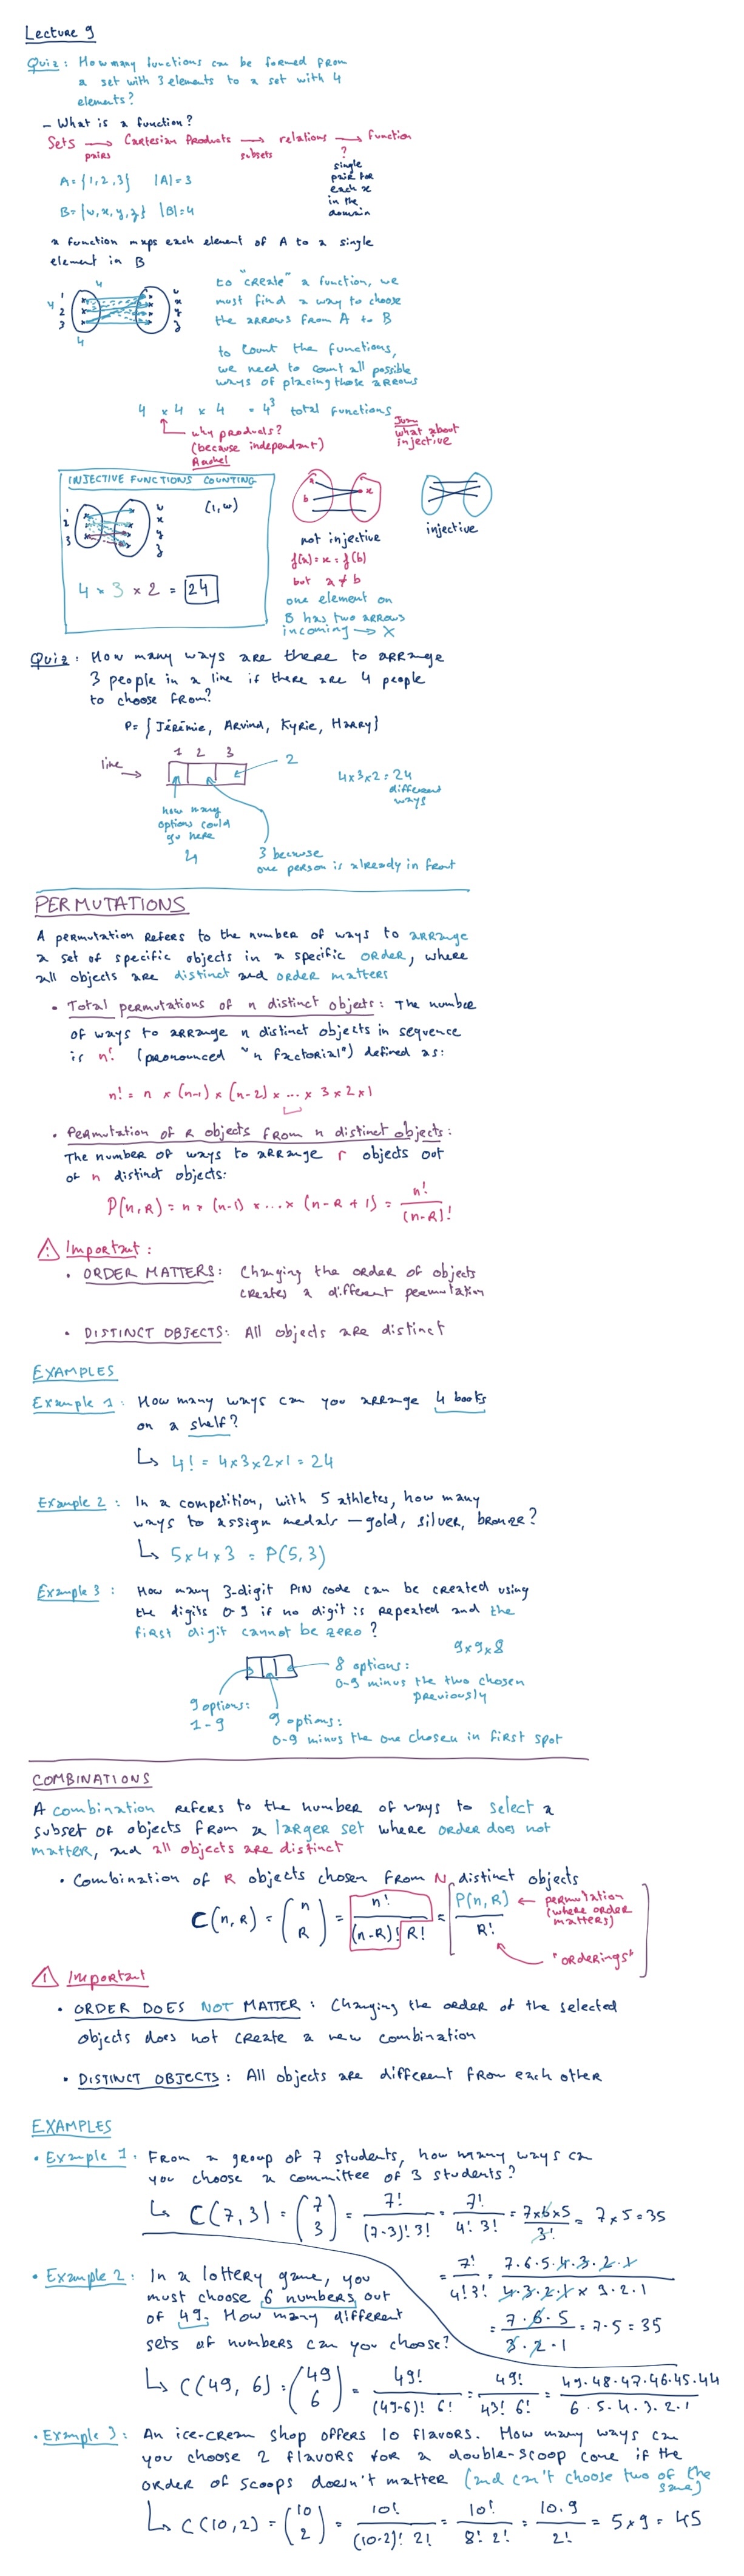 Lecture 9
Quiz: How many functions can be formed from
a set with 3 elements to a set with 4
elements?
- What is a function?
Sets → Cartesian Products → relations → function
pairs subsets ?
single
pair for
each x
in the
domain
A = {1, 2, 3} |A| = 3
B = {w, x, y, z} |B| = 4
a function maps each element of A to a single
element in B
4
4
4
1
2
3
w
x
y
z
to "create" a function, we
must find a way to choose
the arrows from A to B
to count the functions,
we need to count all possible
ways of placing those arrows
4 × 4 × 4 = 4³ total functions
why products?
(because independent)
Rachel
what about
injective
INJECTIVE FUNCTIONS COUNTING
1
2
3
w
x
y
z
(1, w)
4 × 3 × 2 = 24
a
b
x
not injective
f(a) = x = f(b)
but a ≠ b
one element on
B has two arrows
incoming → X
injective
Quiz: How many ways are there to arrange
3 people in a line if there are 4 people
to choose from?
P = {Jérémie, Arvind, Kyrie, Harry}
1 2 3
line →
2
4×3×2 = 24
different
ways
how many
options could
go here
4
3 because
one person is already in front
PERMUTATIONS
A permutation refers to the number of ways to arrange
a set of specific objects in a specific order, where
all objects are distinct and order matters
• Total permutations of n distinct objects: The number
of ways to arrange n distinct objects in sequence
is n! (pronounced "n factorial") defined as:
n! = n × (n-1) × (n-2) × ... × 3 × 2 × 1
• Permutation of R objects from n distinct objects:
The number of ways to arrange r objects out
of n distinct objects:
P(n, R) = n × (n-1) × ... × (n-R+1) = n! / (n-R)!
⚠ Important:
• ORDER MATTERS: Changing the order of objects
creates a different permutation
• DISTINCT OBJECTS: All objects are distinct
EXAMPLES
Example 1: How many ways can you arrange 4 books
on a shelf?
↳ 4! = 4×3×2×1 = 24
Example 2: In a competition, with 5 athletes, how many
ways to assign medals – gold, silver, bronze?
↳ 5×4×3 = P(5, 3)
Example 3: How many 3-digit PIN code can be created using
the digits 0-9 if no digit is repeated and the
first digit cannot be zero?
9×9×8
8 options:
0-9 minus the two chosen
previously
9 options:
1-9
9 options:
0-9 minus the one chosen in first spot
COMBINATIONS
A combination refers to the number of ways to select a
subset of objects from a larger set where order does not
matter, and all objects are distinct
• Combination of R objects chosen from N distinct objects
C(n, R) = (n R) = n! / (n-R)! R! = [P(n, R) / R!]
← permutation
(where order
matters)
"orderings"
⚠ Important
• ORDER DOES NOT MATTER: Changing the order of the selected
objects does not create a new combination
• DISTINCT OBJECTS: All objects are different from each other
EXAMPLES
• Example 1: From a group of 7 students, how many ways can
you choose a committee of 3 students?
↳ C(7, 3) = (7 3) = 7! / (7-3)! 3! = 7! / 4! 3! = 7×6×5 / 3! = 7×5 = 35
= 7! / 4! 3! = 7·6·5·4·3·2·1 / 4·3·2·1 × 3·2·1
= 7·6·5 / 3·2·1 = 7·5 = 35
• Example 2: In a lottery game, you
must choose 6 numbers out
of 49. How many different
sets of numbers can you choose?
↳ C(49, 6) = (49 6) = 49! / (49-6)! 6! = 49! / 43! 6! = 49·48·47·46·45·44 / 6·5·4·3·2·1
• Example 3: An ice-cream shop offers 10 flavors. How many ways can
you choose 2 flavors for a double-scoop cone if the
order of scoops doesn't matter (and can't choose two of the
same)
↳ C(10, 2) = (10 2) = 10! / (10-2)! 2! = 10! / 8! 2! = 10·9 / 2! = 5×9 = 45